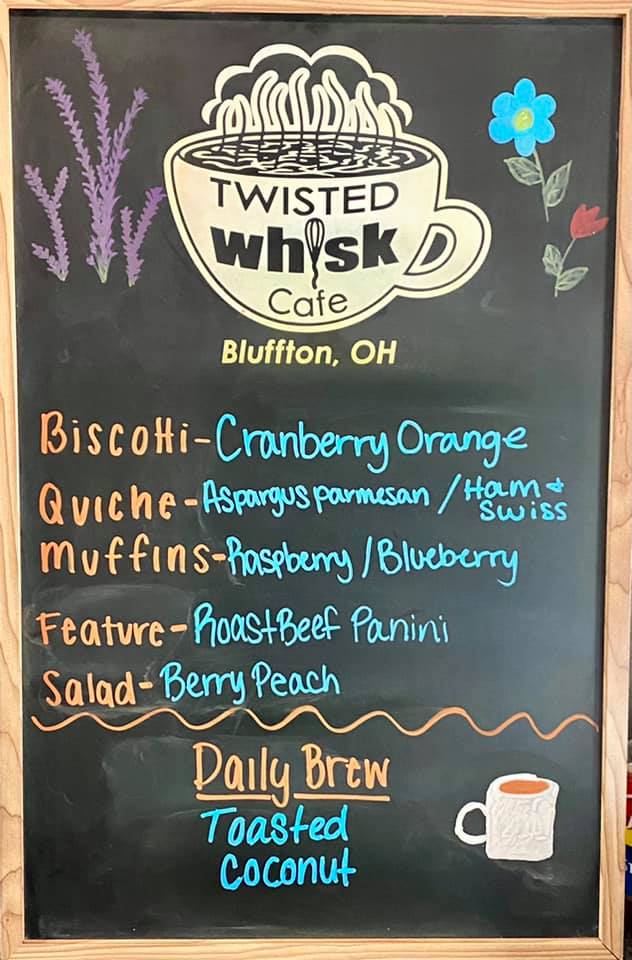 TWISTED
whisk
Cafe
Bluffton, OH
Biscotti-Cranberry Orange
Quiche-Aspargus parmesan / Ham + Swiss
Muffins-Raspberry / Blueberry
Feature-Roast Beef Panini
Salad-Berry Peach
Daily Brew
Toasted
Coconut